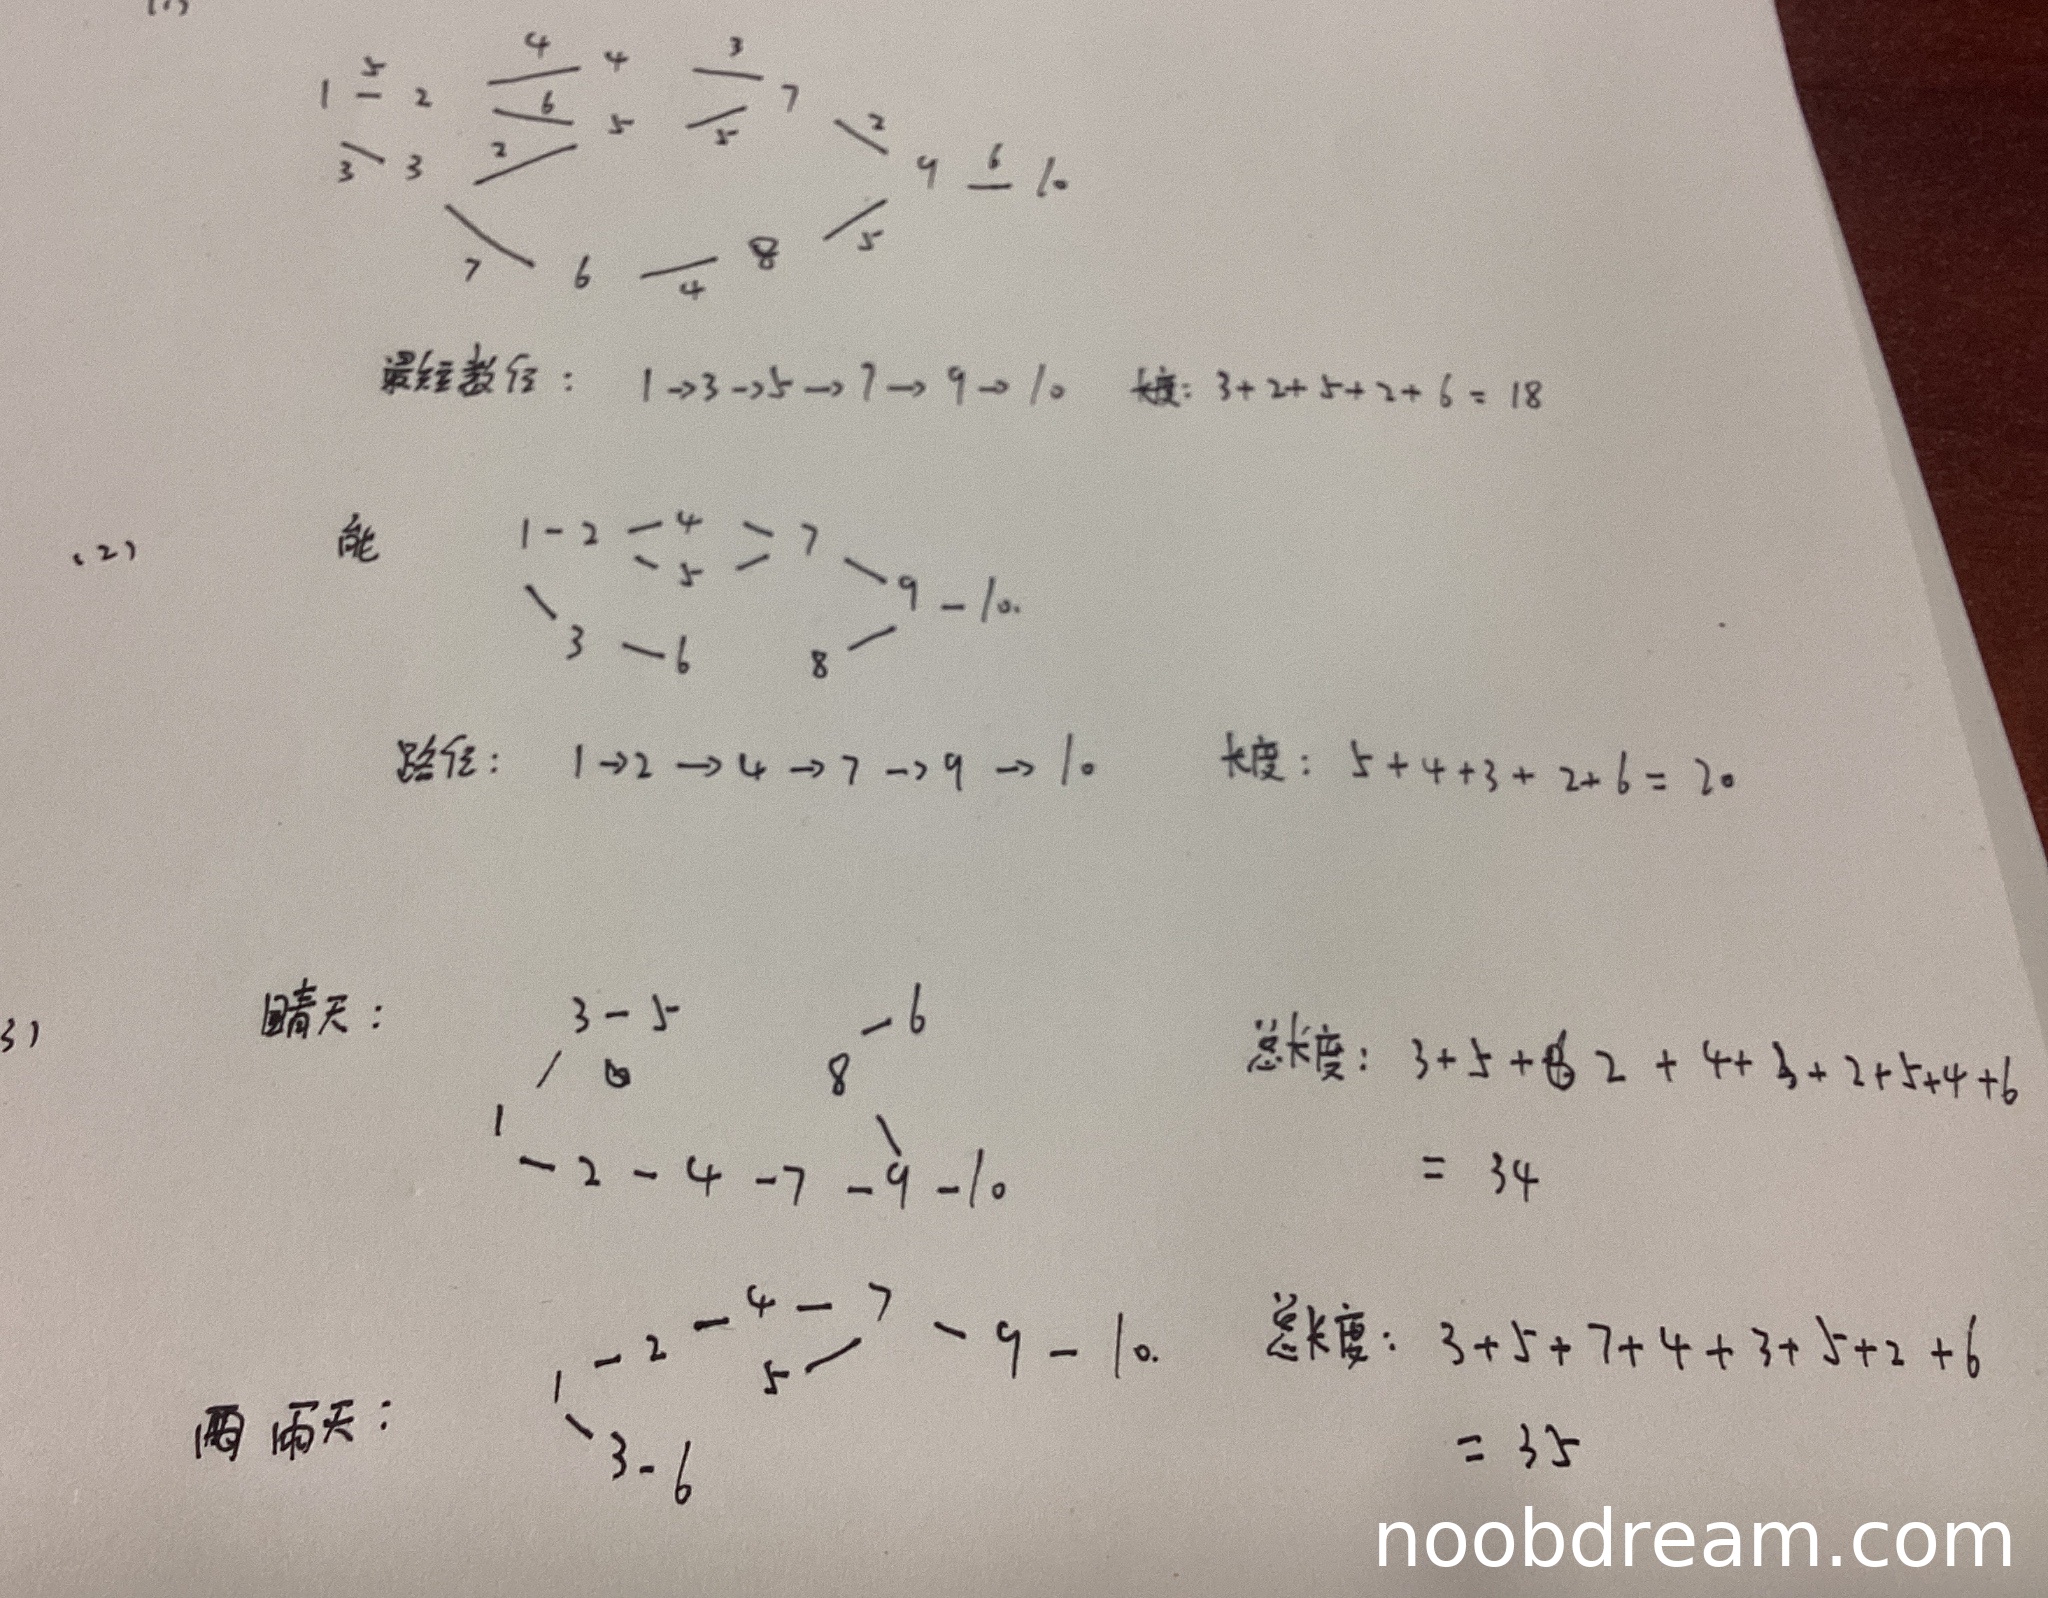 (1)
4 4 3
1 5 2 6 5 5 7 2
3 3 2 9 6 10
7 6 4 8 5
最短数径: 1→3→5→7→9→10 长度: 3+2+5+2+6=18
(2) 能 1-2-4 7
5 9-10.
3-6 8
路径: 1→2→4→7→9→10 长度: 5+4+3+2+6=20
3) 晴天: 3-5 8-6 总长度: 3+5+2+4+3+2+5+4+6
1-2-4-7-9-10 =34
雨天: 1-2-4-7-9-10. 总长度: 3+5+7+4+3+5+2+6
5
3-6 =35
noobdream.com